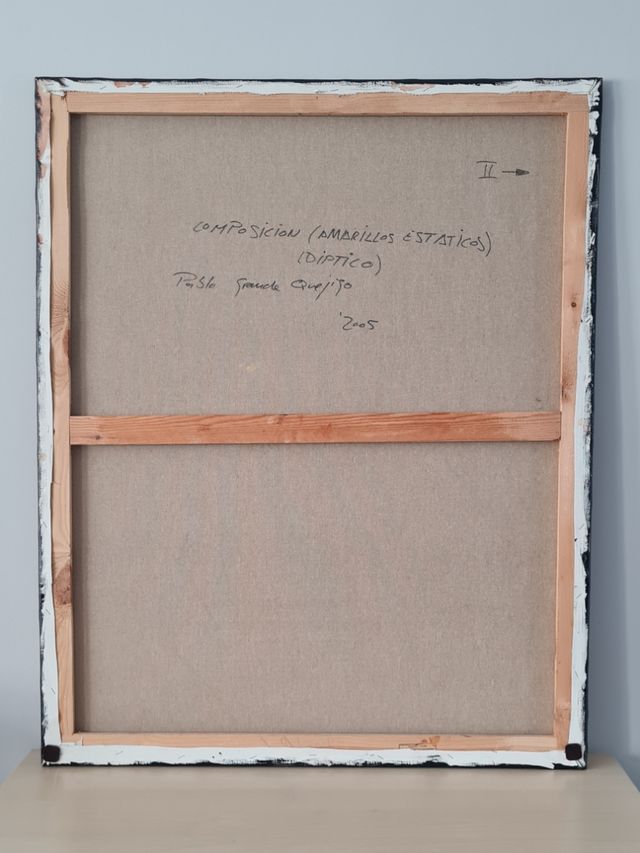 II →
COMPOSICION (AMARILLOS ESTATICOS)
(DIPTICO)
Pablo Grande Quejigo
'2005